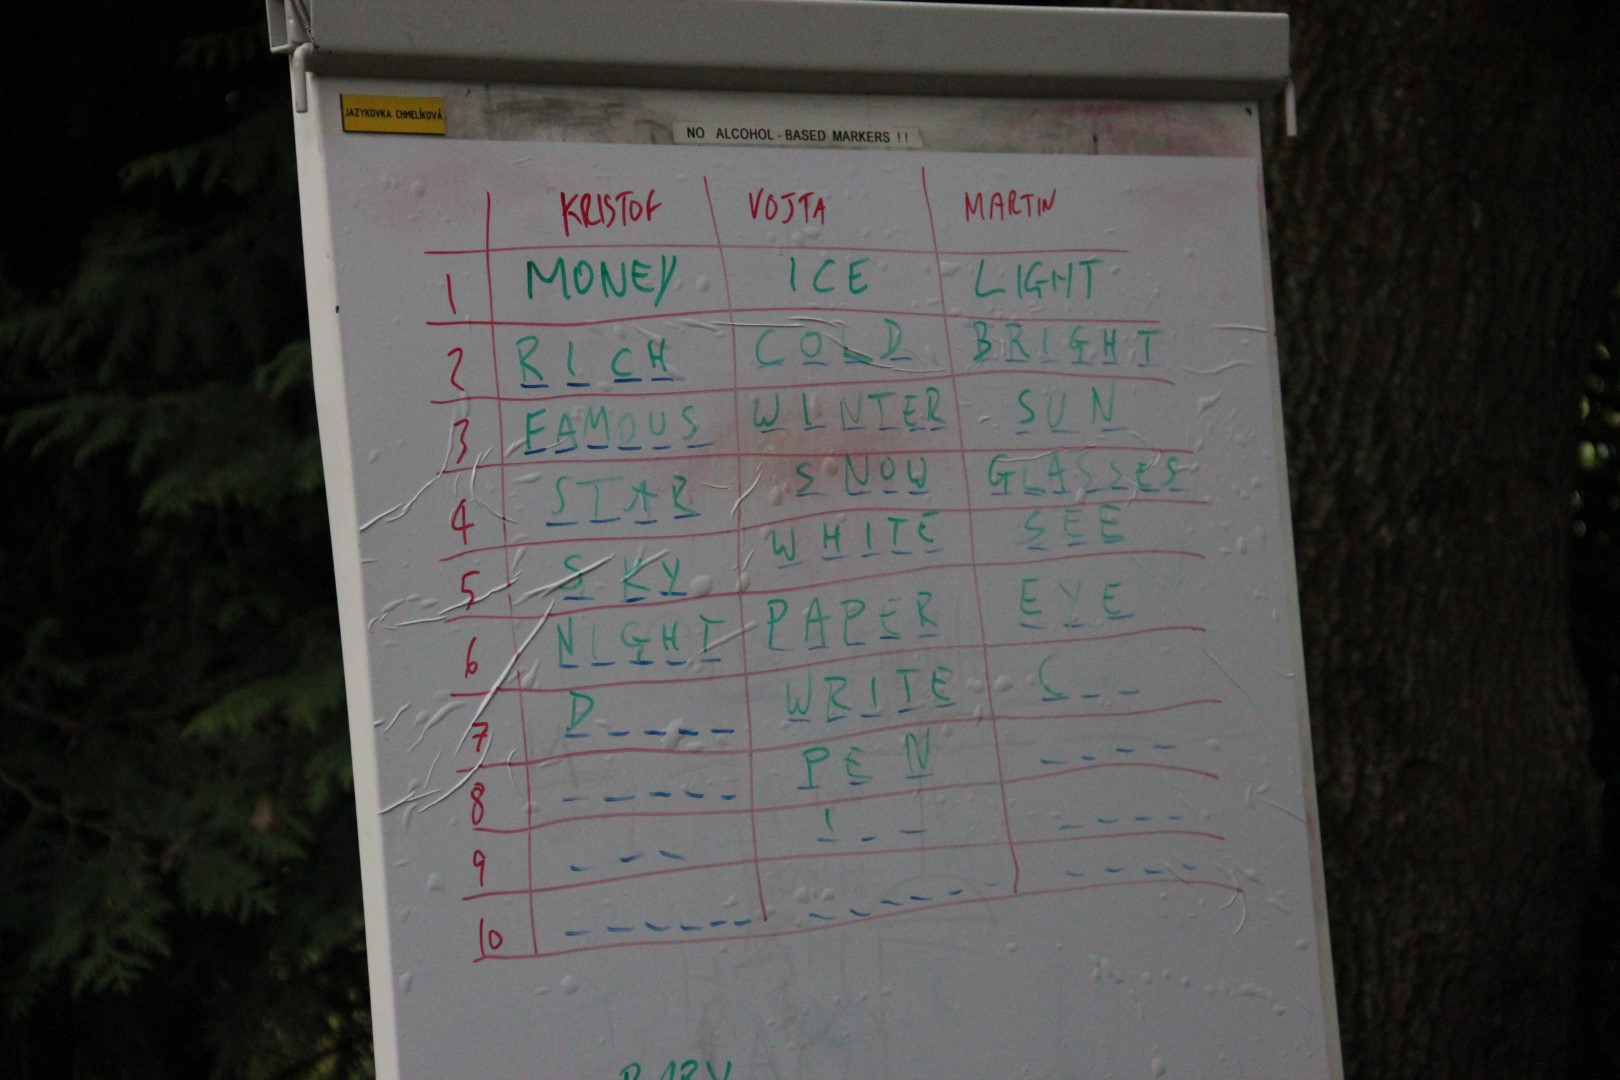 JAZYKOVKA CHMELÍKOVÁ
NO ALCOHOL-BASED MARKERS !!
KRISTOF VOJTA MARTIN
1 MONEY ICE LIGHT
2 RICH COLD BRIGHT
3 FAMOUS WINTER SUN
4 STAR SNOW GLASSES
5 SKY WHITE SEE
6 NIGHT PAPER EYE
7 D _ _ _ _ WRITE C _ _
8 _ _ _ _ _ PEN _ _ _ _
9 _ _ _ I _ _ _ _ _ _
10 _ _ _ _ _ _ _ _ _ _ _ _ _ _ _
BABY